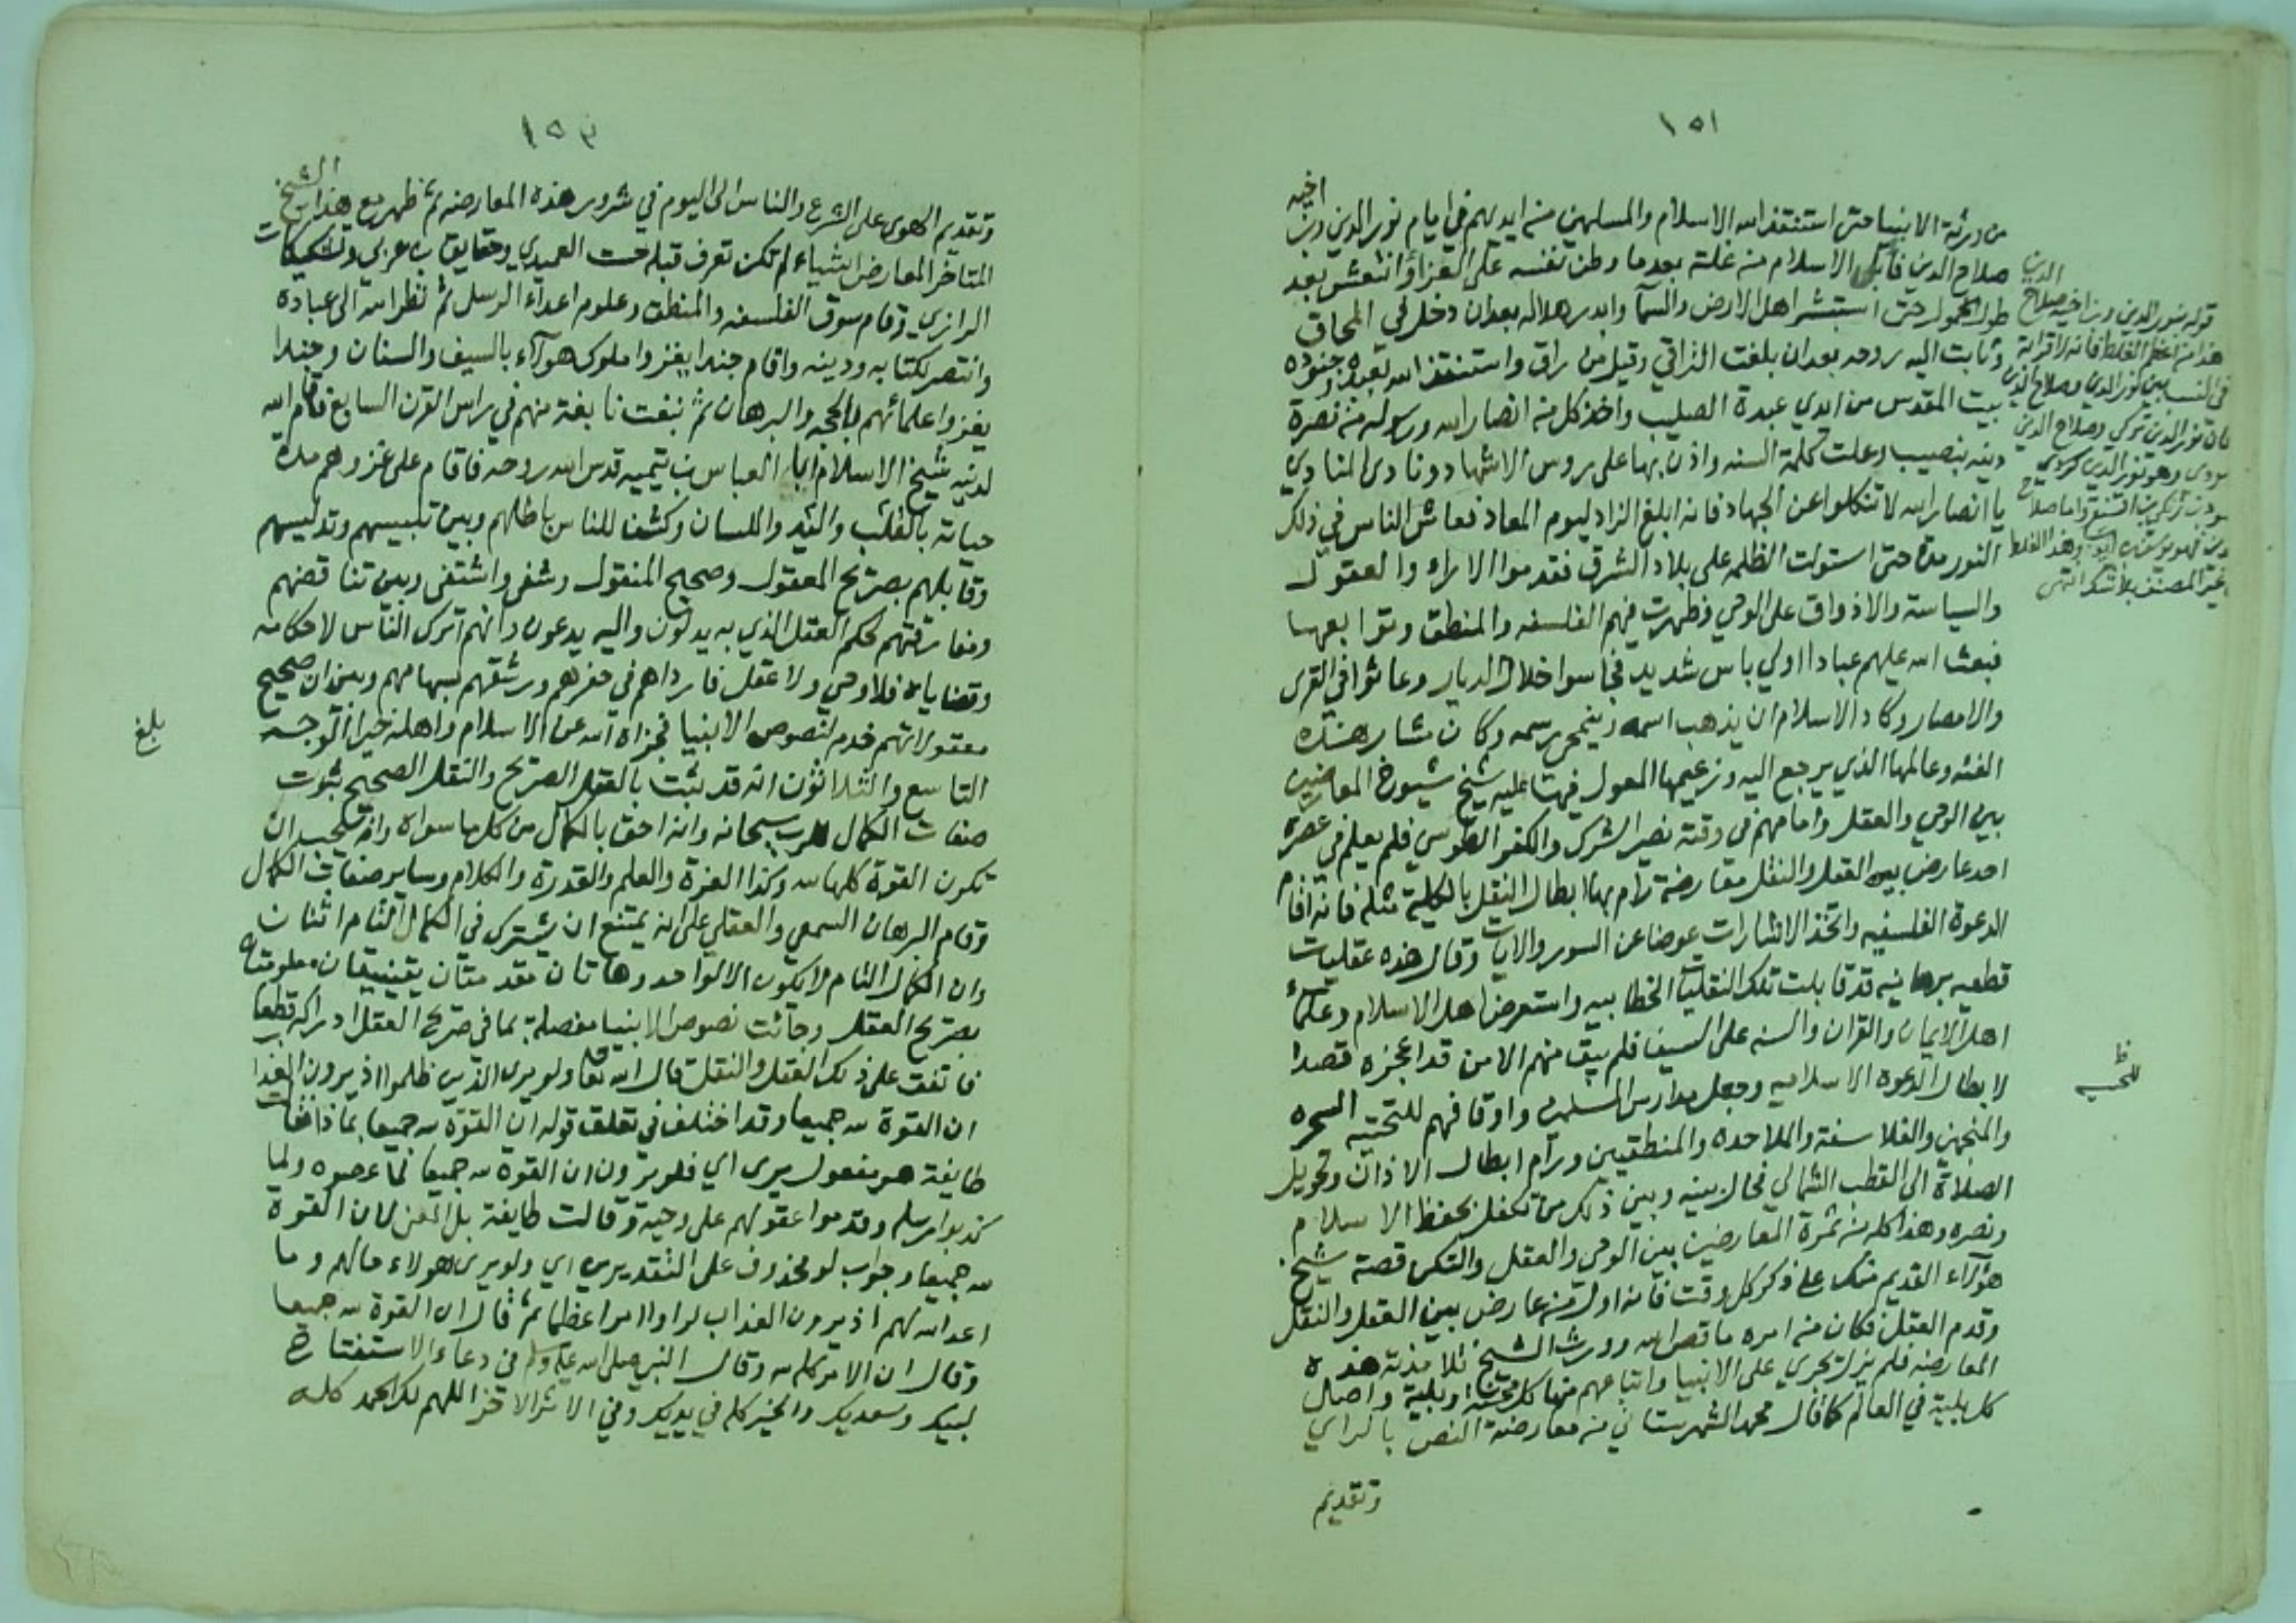 ١٥١
من ورثة الانبيا حتى استنقذ الله الاسلام والمسلمين من ايديهم في ايام نور الدين وبن اخيه
صلاح الدين فابل الاسلام من علته بعد ما وطن نفسه على العزاء وانتعش بعد
طول الخمول حتى استبشر اهل الارض والسما وابدر هلاله بعد ان دخل في المحاق
وثابت اليه روحه بعد ان بلغت التراقي وقيل من راق واستنقذ الله بعبده وجنوده
بيت المقدس من ايدي عبدة الصليب واخذ كل من انصار الله ورسوله من نصرة
دينه بنصيب وعلت كلمة السنه واذن بها على روس الاشهاد ونادى المنادي
يا انصار الله لا تنكلوا عن الجهاد فانه ابلغ الزاد ليوم المعاد فعاش الناس في ذلك
النور مدة حتى استولت الظلمه على بلاد الشرق فقدموا الاراء والعقول
والسياسة والاذواق على الوحي وظهرت فيهم الفلسفه والمنطق وتوابعها
فبعث الله عليهم عبادا اولي باس شديد فجاسوا خلال الديار وعاثوا في القرى
والامصار وكاد الاسلام ان يذهب اسمه وينمحي رسمه وكان مشار هذه
الفئه وعالمها الذي يرجع اليه وزعيمها المعول فيها عليه شيخ شيوخ المعارضين
بين الوحي والعقل وامامهم في وقته نصير الشرك والكفر الطوسي فلم يعلم في عصره
احد عارض بين العقل والنقل معارضة رام بها ابطال النقل بالكلية مثله فانه اقام
الدعوة الفلسفيه واتخذ الاشارات عوضا عن السور والايات وقال هذه عقليات
قطعيه برهانيه قد قابلت تلك النقليات الخطابيه واستعرض اهل الاسلام وعلماء
اهل الايمان والقران والسنه على السيف فلم يبق منهم الا من قد اعجزه قصدا
لابطال الدعوة الاسلاميه وجعل مدارس المسلمين واوقافهم للنحتيه السحره
والمنجمين والفلاسفة والملاحده والمنطقيين ورام ابطال الاذان وتحويل
الصلاة الى القطب الشمالي فحال بينه وبين ذلك من تكفل بحفظ الاسلام
ونصره وهذا كله من ثمرة المعارضين بين الوحي والعقل ولتكن قصة شيخ
هؤلاء القديم منك على ذكر كل وقت فانه اول من عارض بين العقل والنقل
وقدم العقل فكان من امره ما قص الله وورث الشيخ تلامذته هذه
المعارضه فلم يزل يجري على الانبيا واتباعهم منها كل محنة وبلية واصل
كل بلية في العالم كما قال محمد الشهرستاني من معارضة النص بالراي
وتقديم
قوله نور الدين وبن اخيه صلاح الدين
هذا من اعظم الغلط فانه لا قرابة
في النسب بين نور الدين وصلاح الدين
فان نور الدين تركي وصلاح الدين
كردي وهو نور الدين
بن زنكي بن اقسنقر واما صلاح
الدين فهو يوسف بن ايوب وهذا الغلط
من غير المصنف بلا شك انتهى
ظ
١٥٢
وتقديم الهوى على الشرع والناس الى اليوم في شرور هذه المعارضه ثم ظهر مع هذا الشيخ
المتاخر المعارض اشياء لم تكن تعرف قبله حست العميدي وحقايق بن عربي وتشكيكات
الرازي وقام سوق الفلسفه والمنطق وعلوم اعداء الرسل ثم نظر الله الى عباده
وانتصر لكتابه ودينه واقام جندا يغزوا ملوك هولاء بالسيف والسنان وجندا
يغزوا علمائهم بالحجه والبرهان ثم نبغت نابغة منهم في راس القرن السابع فاقام الله
لدينه شيخ الاسلام ابا العباس بن تيميه قدس الله روحه فاقام على غزوهم مدة
حياته بالقلب واليد واللسان وكشف للناس باطلهم وبين تلبيسهم وتدليسهم
وقابلهم بصريح المعقول وصحيح المنقول وشفى واشتفى وبين تناقضهم
ومفارقتهم لحكم العقل الذي به يدلون واليه يدعون وانهم اترك الناس لاحكامه
وقضاياه فلا وحي ولا عقل فارداهم في حفرهم ورشقهم بسهامهم وبين ان صحيح
معقولاتهم خدم لنصوص الانبيا فجزاه الله عن الاسلام واهله خيرا الوجه
التاسع والثلاثون انه قد ثبت بالعقل الصريح والنقل الصحيح ثبوت
صفات الكمال للرب سبحانه وانه احق بالكمال من كل ما سواه وانه يجب ان
تكون القوة كلها لله وكذا العزة والعلم والقدرة والكلام وساير صفات الكمال
وقام البرهان السمعي والعقلي على انه يمتنع ان يشترك في الكمال التام اثنان
وان الكمال التام لا يكون الا لواحد وهاتان مقدمتان يقينيتان معلومتان
بصريح العقل وجائت نصوص الانبيا مفصلة بما في صريح العقل ادراكه قطعا
فاتفق على ذلك العقل والنقل قال الله تعالى ولو يرى الذين ظلموا اذ يرون العذاب
ان القوة لله جميعا وقد اختلف في تعلق قوله ان القوة لله جميعا بماذا فقالت
طايفة هو مفعول يرى اي فلو يرون ان القوة لله جميعا لما عصوه ولما
كذبوا رسله وقدموا عقولهم على وحيه وقالت طايفة بل المعنى لان القوة
لله جميعا وجواب لو محذوف على التقديرين اي ولو يرى هولاء حالهم وما
اعد الله لهم اذ يرون العذاب لراوا امرا عظيما ثم قال ان القوة لله جميعا
وقال ان الامر كله لله وقال النبي صلى الله عليه وسلم في دعاء الاستفتاح
لبيك وسعديك والخير كله في يديك وفي الاثر الاخر اللهم لك الحمد كله
بلغ